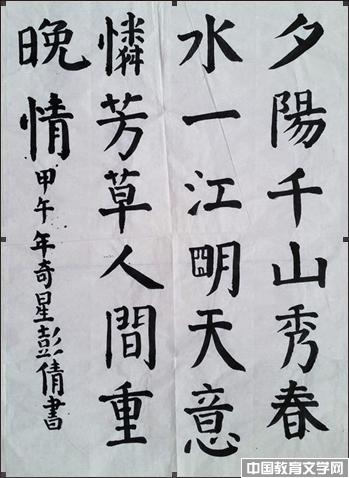 夕陽千山秀春
水一江明天意
憐芳草人間重
晚情
甲午年奇星彭倩書
中国教育文学网